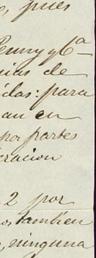 , pues
Penny y 6ª
nas de
idas: para
au en
por partes
eracion
2 por
os tambien
, ninguna